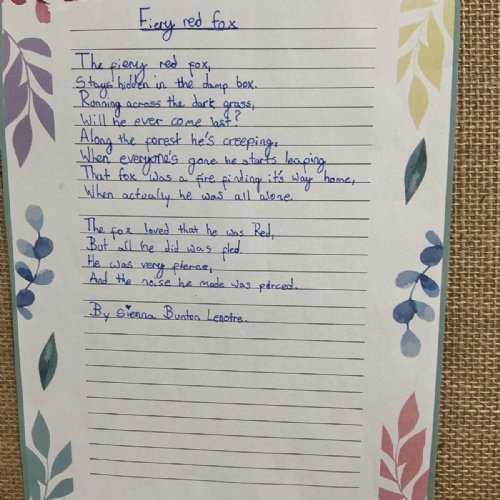 Fiery red fox
The fiery red fox,
Stays hidden in the damp box.
Running across the dark grass,
Will he ever come last?
Along the forest he's creeping,
When everyone's gone he starts leaping
That fox was a fire finding it's way home,
When actually he was all alone.
The fox loved that he was Red,
But all he did was fled.
He was very fierce,
And the noise he made was pirced.
By Sienna Bunton Lenotre.